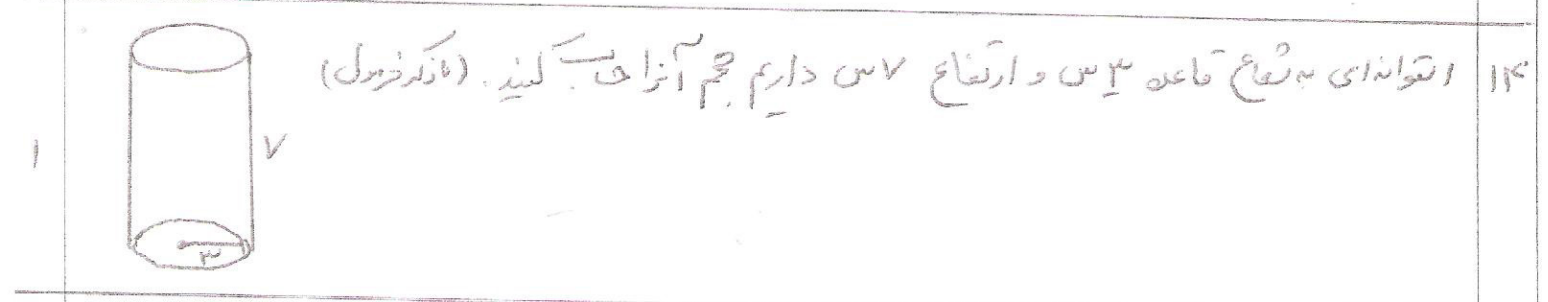 ۱۴ استوانه‌ای به شعاع قاعده ۳س و ارتفاع ۷س داریم حجم آنرا حساب کنید. (با ذکر فرمول)
۷
۱
۳